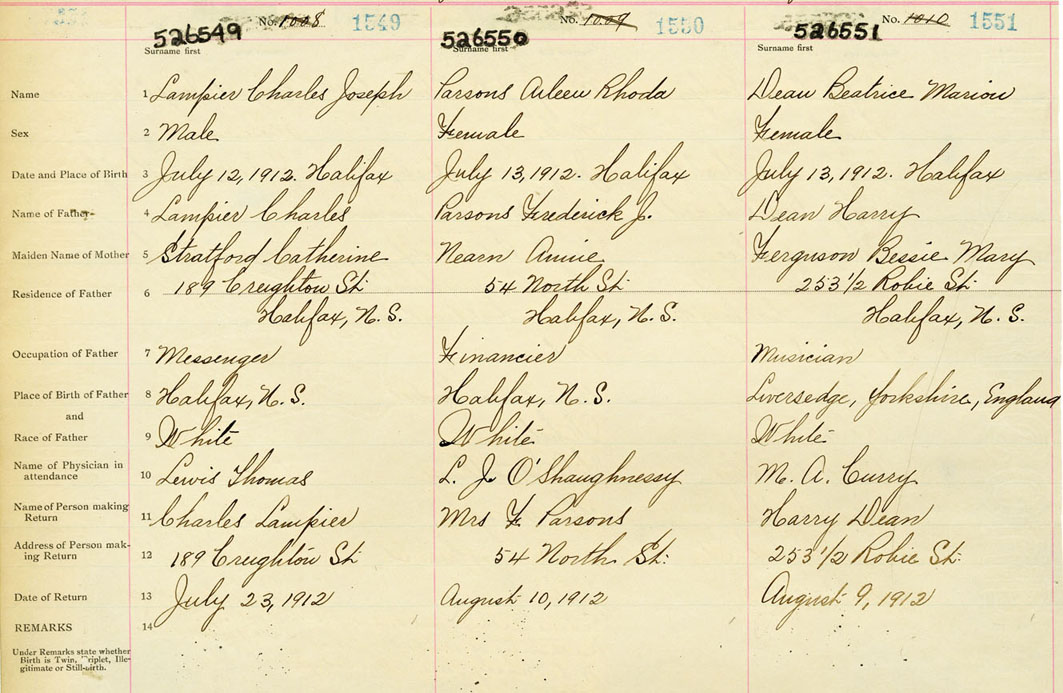 No. 1008 1549 No. 1009 1550 No. 1010 1551
526549 526550 526551
Surname first Surname first Surname first
Name 1 Lampier Charles Joseph Parsons Aileen Rhoda Dean Beatrice Marion
Sex 2 Male Female Female
Date and Place of Birth 3 July 12, 1912. Halifax July 13, 1912. Halifax July 13, 1912. Halifax
Name of Father 4 Lampier Charles Parsons Frederick J. Dean Harry
Maiden Name of Mother 5 Stratford Catherine Nearn Annie Ferguson Bessie Mary
Residence of Father 6 189 Creighton St. 54 North St. 253 1/2 Robie St.
Halifax, N.S. Halifax, N.S. Halifax, N.S.
Occupation of Father 7 Messenger Financier Musician
Place of Birth of Father 8 Halifax, N.S. Halifax, N.S. Liversedge, Yorkshire, England
and
Race of Father 9 White White White
Name of Physician in attendance 10 Lewis Thomas L. J. O'Shaughnessy M. A. Curry
Name of Person making Return 11 Charles Lampier Mrs F. Parsons Harry Dean
Address of Person mak-
ing Return 12 189 Creighton St. 54 North St. 253 1/2 Robie St.
Date of Return 13 July 23, 1912 August 10, 1912 August 9, 1912
REMARKS 14
Under Remarks state whether
Birth is Twin, Triplet, Ille-
gitimate or Still-birth.